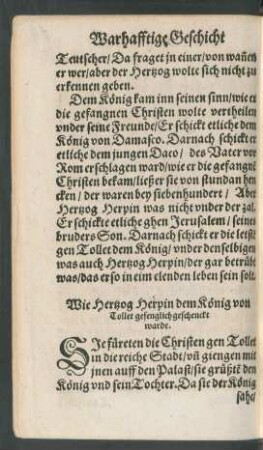 Warhafftige Geschicht
Teutscher/ Da fraget jn einer/ von wañen
er wer/ aber der Hertzog wolte sich nicht zu
erkennen geben.
Dem König kam inn seinen sinn/ wie er
die gefangnen Christen wolte vertheilen
vnder seine Freunde/ Er schickt etliche dem
König von Damasco. Darnach schickt er
etliche dem jungen Daco/ des Vater vor
Rom erschlagen ward/ wie er die gefangnē
Christen bekam/ ließ er sie von stundan hen
cken/ der waren bey siebenhundert/ Aber
Hertzog Herpin was nicht vnder der zal.
Er schickte etliche ghen Jerusalem/ seines
bruders Son. Darnach schickt er die letst
gen Tollet dem König/ vnder denselbigen
was auch Hertzog Herpin/ der gar betrübt
was/ das er so in eim elenden leben sein solt.
Wie Hertzog Herpin dem König von
Tollet gefenglich geschenckt
warde.
SJe füreten die Christen gen Tollet
in die reiche Stadt/ vñ giengen mit
jnen auff den Palast/ sie grüßtē den
König vnd sein Tochter. Da sie der König
sahe/